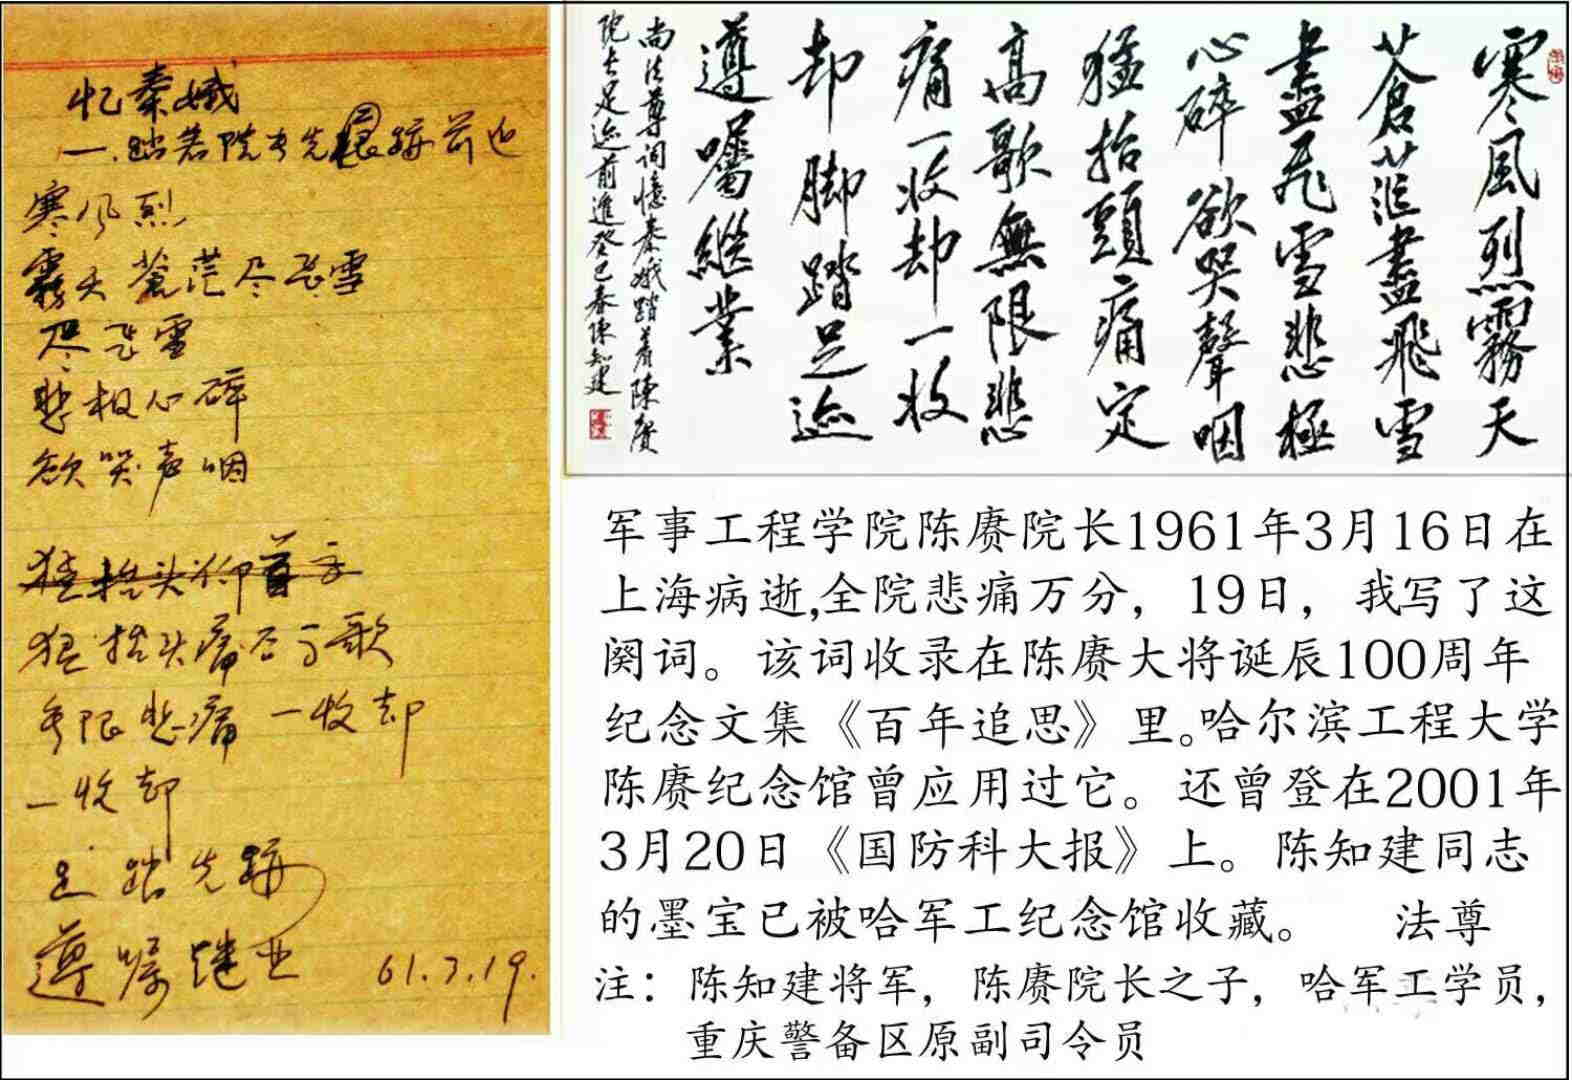 忆秦娥
一.踏着院长先跟跡前进
寒风烈
霧天蒼茫尽飞雪
尽飞雪
悲极心碎
欲哭声咽
猛抬头仰首
猛抬头痛定高歌
无限悲痛一收却
一收却
足踏先跡
遵嘱继业 61.3.19.
寒風烈霧天
蒼茫盡飛雪
盡飛雪悲極
心碎欲哭聲咽
猛抬頭痛定
高歌無限悲
痛一收却一收
却脚踏足迹
遵囑縱業
尚法尊词憶秦娥踏着陳賡
院长足迹前進癸巳春陳知建
军事工程学院陈赓院长1961年3月16日在
上海病逝,全院悲痛万分，19日，我写了这
阕词。该词收录在陈赓大将诞辰100周年
纪念文集《百年追思》里。哈尔滨工程大学
陈赓纪念馆曾应用过它。还曾登在2001年
3月20日《国防科大报》上。陈知建同志
的墨宝已被哈军工纪念馆收藏。 法尊
注：陈知建将军，陈赓院长之子，哈军工学员，
重庆警备区原副司令员